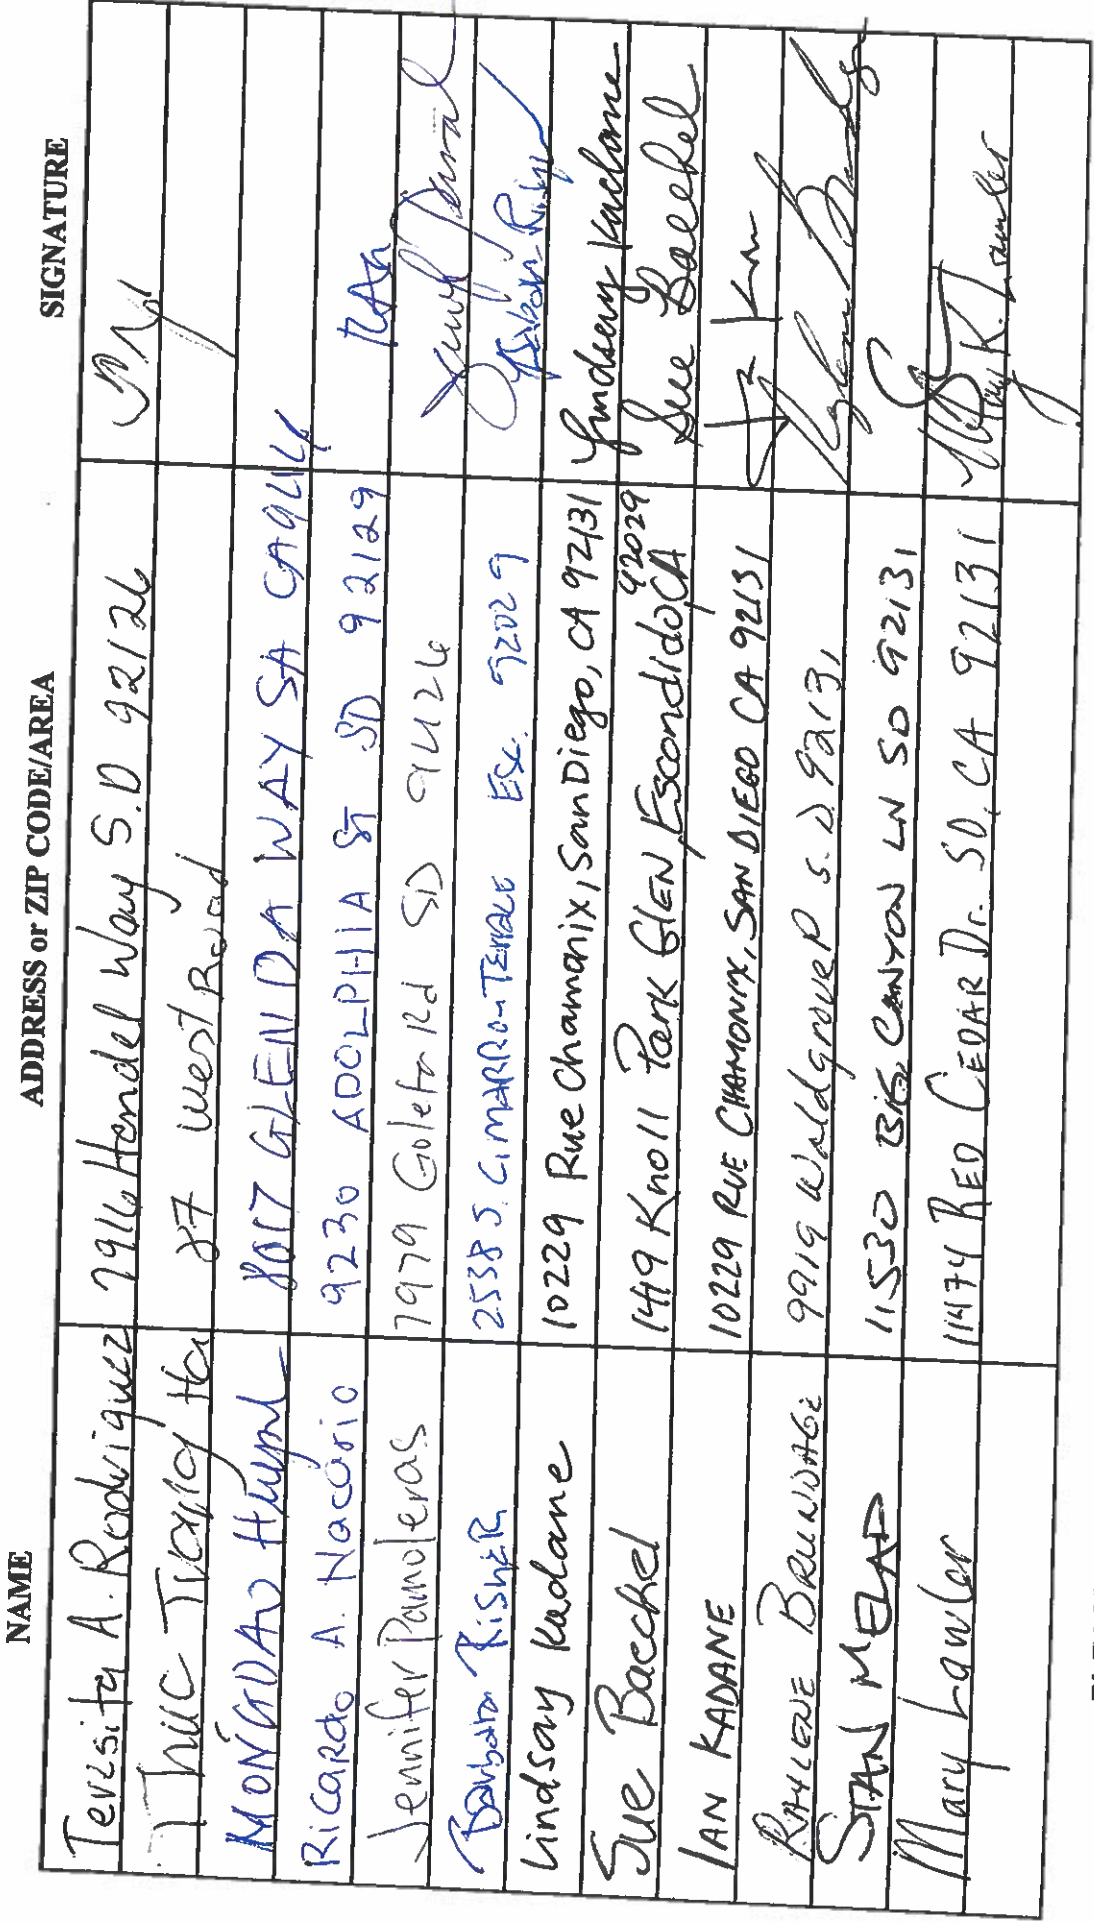 NAME ADDRESS or ZIP CODE/AREA SIGNATURE
Terisita A. Rodriguez 7916 Hendel Way S.D 92126
Thuc Trang Ha 87 West Road
8017 GLENDA WAY SA CA
Ricardo A. Nacario 9230 ADOLPHIA ST SD 92129 RAn
Jennifer Pamoleras 7979 Goleta Rd SD 92126
Barbara Risher 2538 S. CIMARRON TERRACE Esc. 92029
Lindsay Kadane 10229 Rue Chamonix, San Diego, CA 92131 Lindsay Kadane
Sue Baechel 1419 Knoll Park GLEN, Escondido, CA 92029 Sue Baechel
IAN KADANE 10229 RUE CHAMONIX, SAN DIEGO CA 92131
RAYLENE BRUNDAGE 9919 Waldgrove P S.D. 92131
STAN MELAD 11530 BIG CANYON LN SD 92131
Mary Lawler 11474 RED CEDAR Dr. SD, CA 92131 Mary K. Lawler